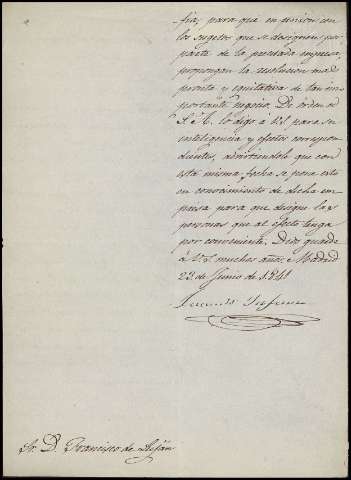 fia, para que en union con
los sugetos que se designen por
parte de la precitada empresa,
propongan la resolucion mas
pronta y equitativa de tan im-
portante negocio. De orden de
S. A. lo digo a V.S. para su
inteligencia y efectos correspon-
dientes, advirtiendole que con
esta misma fecha se pone esto
en conocimiento de dicha em-
presa para que designe las
personas que al efecto tenga
por conveniente. Dios guarde
á V.S. muchos años. Madrid
22 de Junio de 1841
Sr. D. Francisco de